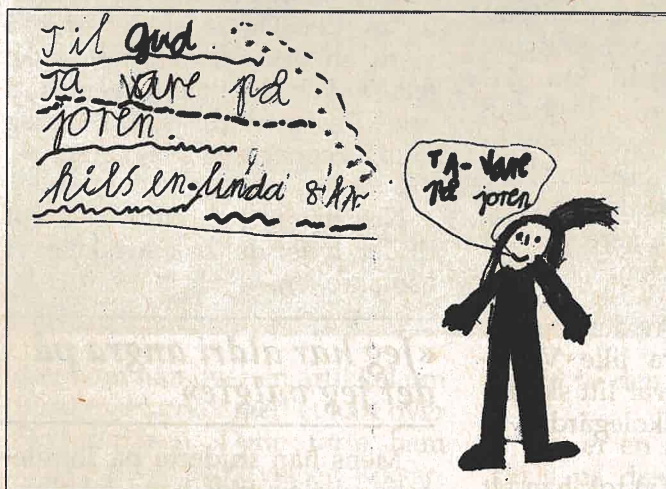 Til Gud
TA vare på
joren.
hilsen. linda 8 ÅR
TA-vare
på joren